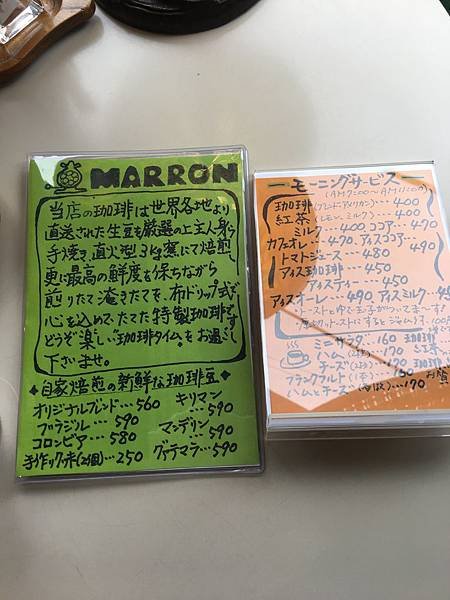 MARRON
当店の珈琲は世界各地より
直送された生豆を厳選の上主人自ら
手焼き直火型3kg窯にて焙煎
更に最高の鮮度を保ちながら
煎りたて淹きたてを、布ドリップ式で
心を込めてたてた特製珈琲です
どうぞ楽しい珈琲タイムをお過し
下さいませ。
自家焙煎の新鮮な珈琲豆
オリジナルブレンド…560
ブラジル…590
コロンビア…580
手作りクッキー(2個)…250
キリマン…590
マンデリン…590
グァテマラ…590
モーニングサービス
(AM7:00〜AM11:00)
珈琲(ブレンド・アメリカン)…400
紅茶(レモン、ミルク)…400
ミルク…400、ココア…490
カフェオレ…470、アイスココア…490
トマトジュース…480
アイス珈琲…450
アイスティー…450
アイスオーレ…490 アイスミルク…450
トーストとゆで玉子がついてま〜す
厚切トーストにすると ジャム 100
ミニサラダ…160
ハム
チーズ
フランクフルト(1本)
ハムとチーズ…190